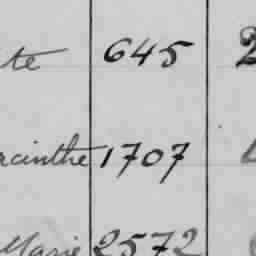 te 645 2
acinthe 1707
Marie 2572